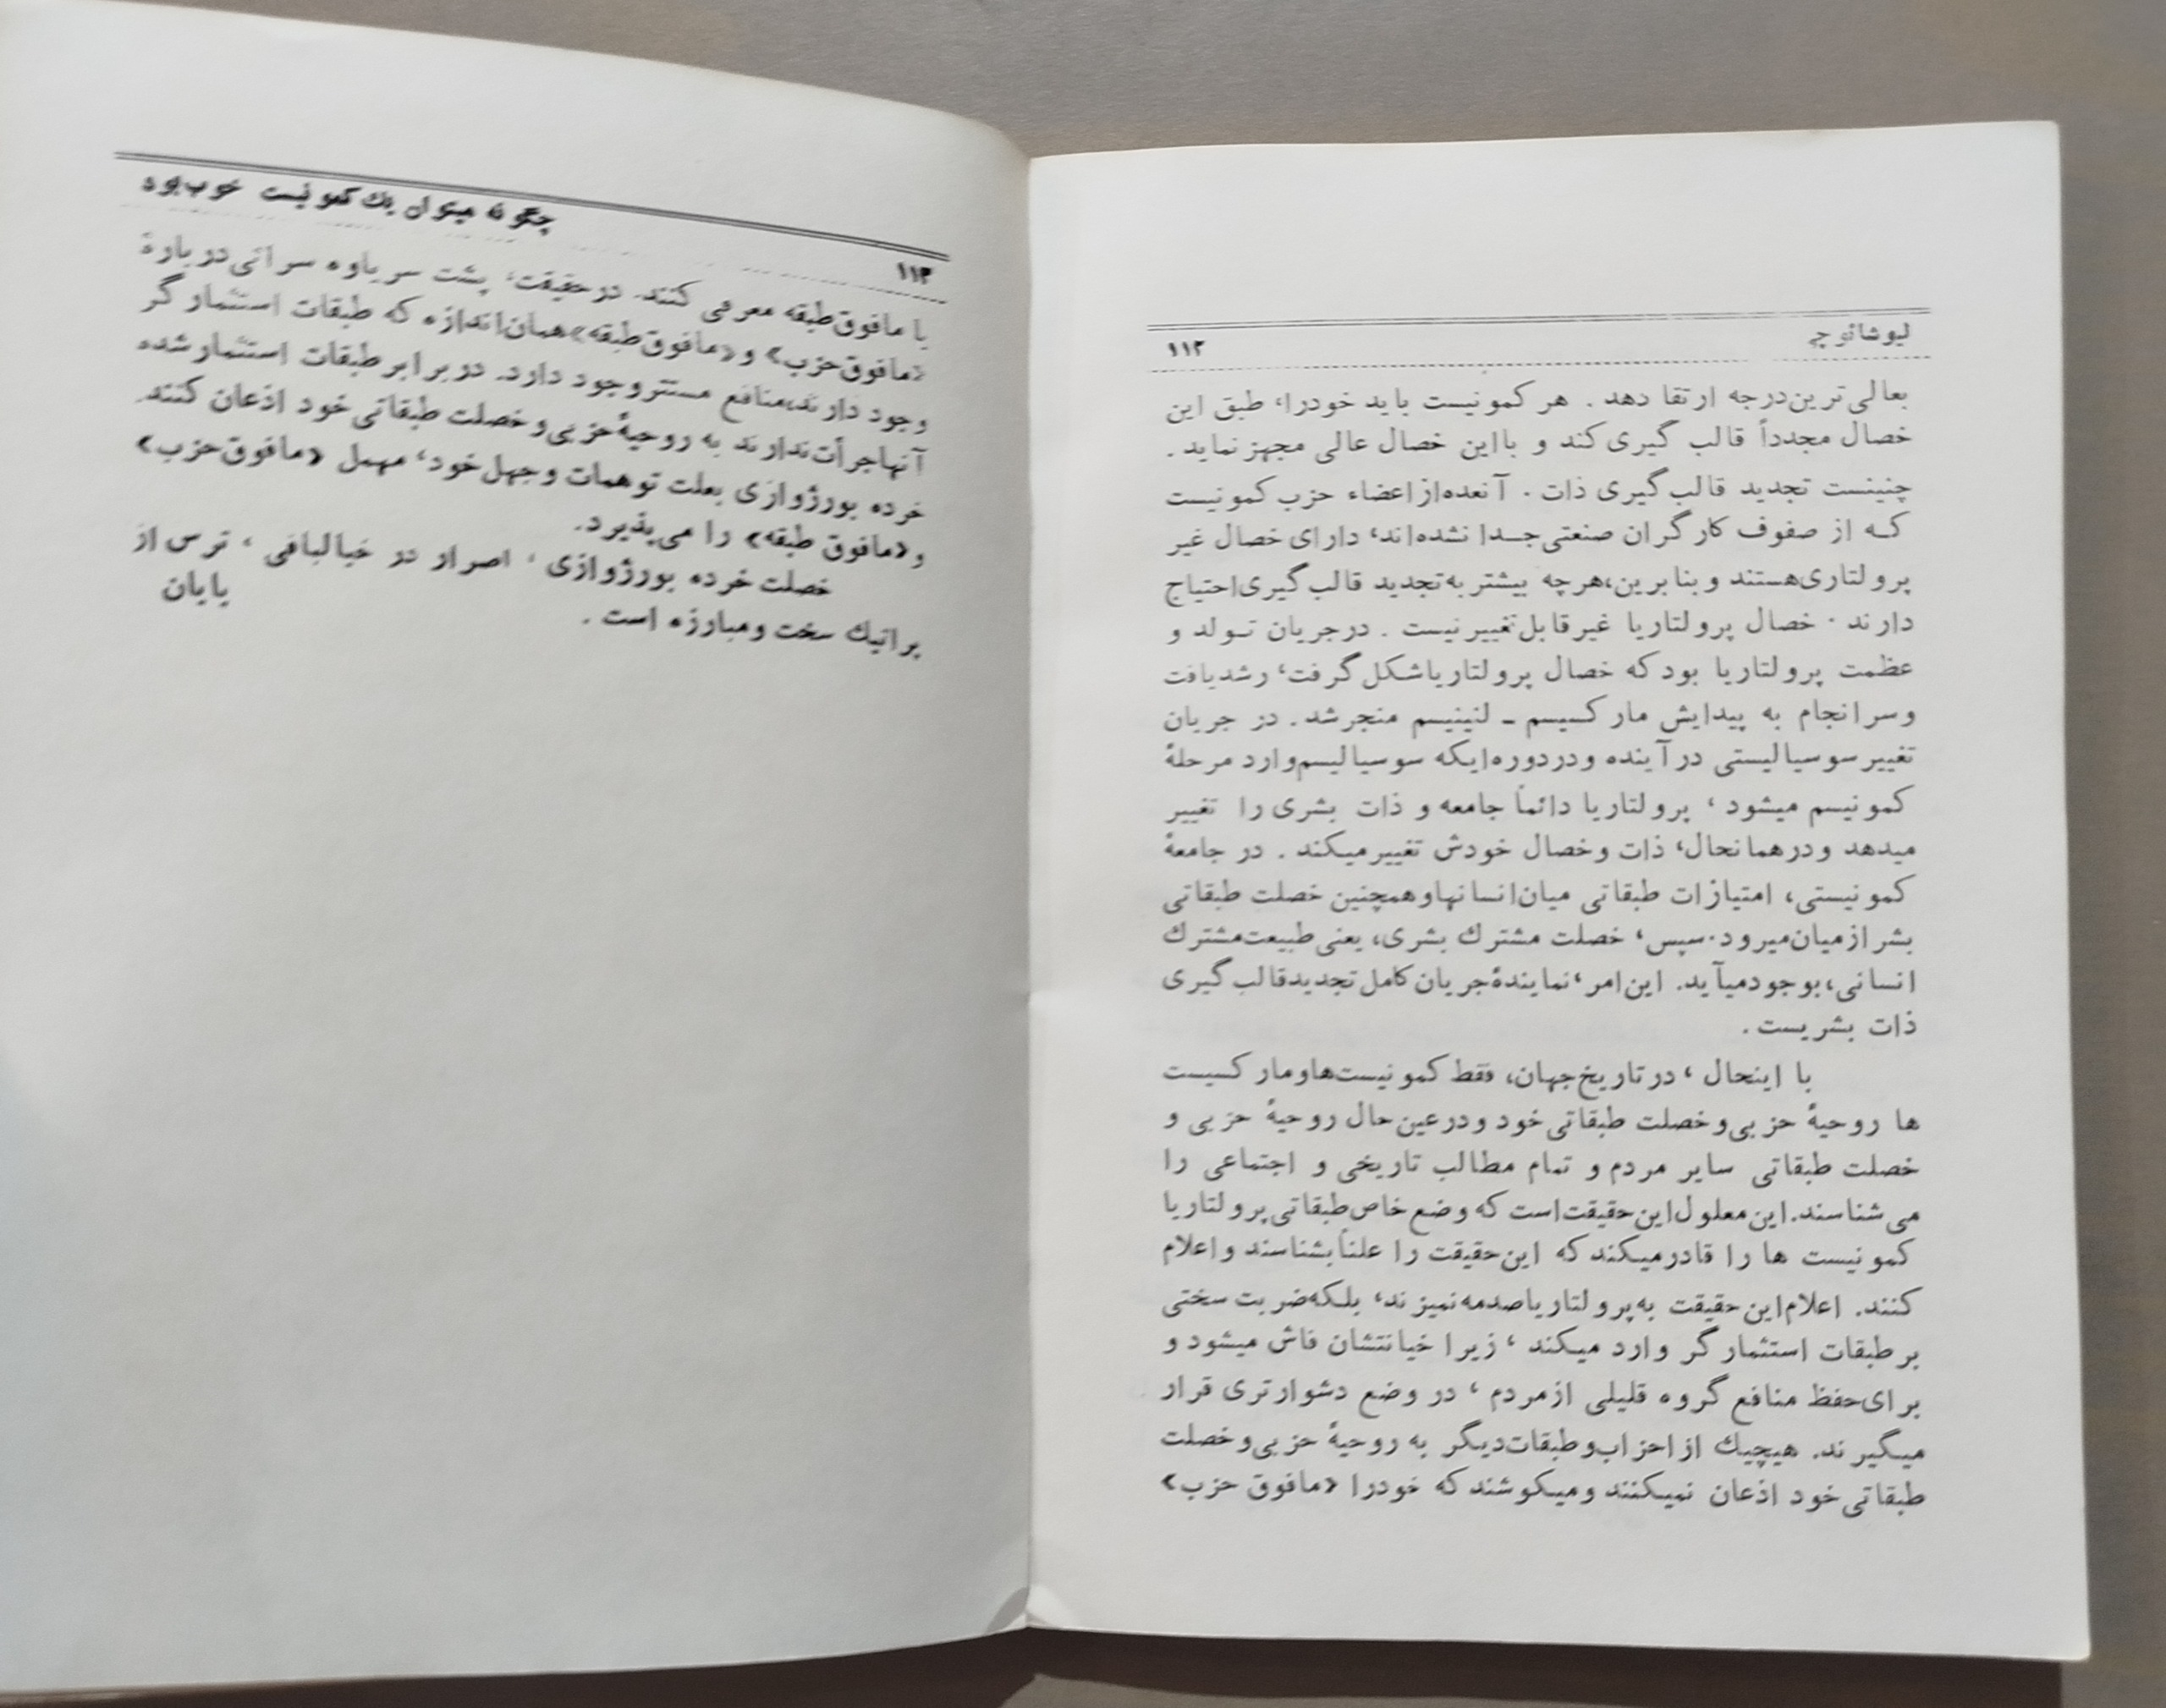 لیوشائوچی
۱۱۲
بعالی‌ترین‌درجه ارتقا دهد . هر کمونیست باید خودرا، طبق این
خصال مجدداً قالب گیری کند و بااین خصال عالی مجهز نماید .
چنینست تجدید قالب گیری ذات . آنعده‌از اعضاء حزب کمونیست
کـه از صفوف کارگران صنعتی‌جـدا نشده‌اند، دارای خصال غیر
پرولتاری‌هستند و بنابرین،هرچه بیشتر به‌تجدید قالب گیری‌احتیاج
دارند . خصال پرولتاریا غیرقابل‌تغییرنیست . درجریان تـولد و
عظمت پرولتاریا بودکه خصال پرولتاریاشکل گرفت، رشدیافت
وسرانجام به پیدایش مارکسیسم ـ لنینیسم منجرشد. در جریان
تغییرسوسیالیستی درآینده ودردوره‌ایکه سوسیالیسم‌وارد مرحلهٔ
کمونیسم میشود ، پرولتاریا دائماً جامعه و ذات بشری را تغییر
میدهد ودرهمانحال، ذات وخصال خودش تغییرمیکند . در جامعهٔ
کمونیستی، امتیازات طبقاتی میان‌انسانهاوهمچنین خصلت طبقاتی
بشر ازمیان‌میرود.سپس، خصلت مشترك بشری، یعنی طبیعت‌مشترك
انسانی،بوجودمیآید. این‌امر،نمایندهٔ‌جریان‌کامل‌تجدیدقالب گیری
ذات بشریست .
با اینحال ، درتاریخ‌جهان، فقط کمونیست‌هاومارکسیست
ها روحیهٔ حزبی‌وخصلت طبقاتی‌خود ودرعین‌حال روحیهٔ حزبی و
خصلت طبقاتی سایر مردم و تمام مطالب تاریخی و اجتماعی را
می‌شناسند.این‌معلول‌این‌حقیقت‌است که وضع‌خاص‌طبقاتی‌پرولتاریا
کمونیست ها را قادرمیکندکه این‌حقیقت را علناً‌بشناسند واعلام
کنند. اعلام‌این‌حقیقت به‌پرولتاریاصدمه‌نمیزند، بلکه‌ضربت سختی
برطبقات استثمارگر وارد میکند ، زیرا خیانتشان فاش میشود و
برای‌حفظ منافع گروه قلیلی ازمردم ، در وضع دشوارتری قرار
میگیرند. هیچیك ازاحزاب‌وطبقات‌دیگر به روحیهٔ حزبی‌وخصلت
طبقاتی‌خود اذعان نمیکنند ومیکوشند که خودرا «مافوق حزب»
۱۱۳
چگونه میتوان یك کمونیست خوب‌بود
یا مافوق‌طبقه معرفی کنند. درحقیقت، پشت سریاوه سرائی‌دربارهٔ
«مافوق‌حزب» و«مافوق‌طبقه»همان‌اندازه که طبقات استثمارگر
وجود دارند،منافع مستتر وجود دارد. دربرابر طبقات استثمارشده
آنهاجرأت‌ندارند به روحیهٔ‌حزبی‌وخصلت طبقاتی‌خود اذعان کنند.
خرده بورژوازی بعلت توهمات وجهل‌خود، مهمل «مافوق‌حزب»
و«مافوق طبقه» را می‌پذیرد.
خصلت خرده بورژوازی ، اصرار در خیالبافی ، ترس از
پراتیك سخت ومبارزه است .
پایان